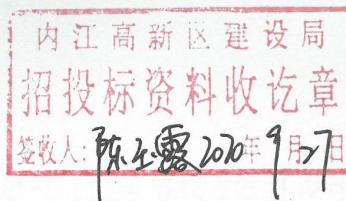 内江高新区建设局
招投标资料收讫章
签收人:陈玉露2020年9月27日